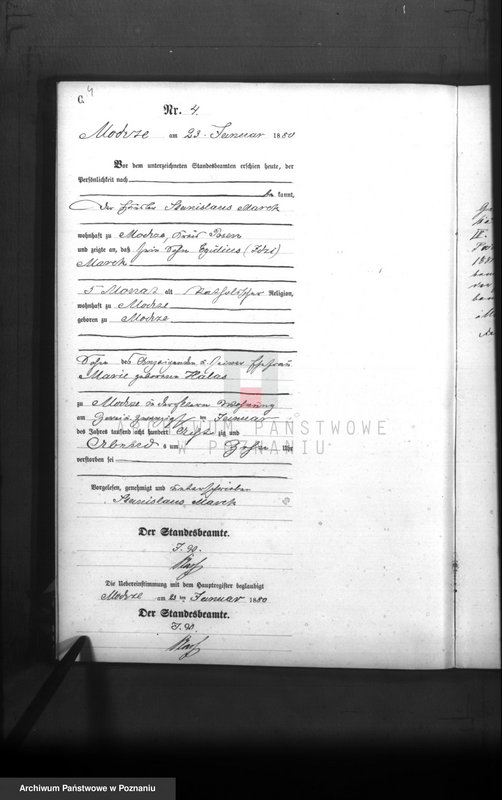 C.
4
Nr. 4.
Modrze am 23. Januar 1880
Vor dem unterzeichneten Standesbeamten erschien heute, der
Persönlichkeit nach
kannt,
Der Häusler Stanislaus March
wohnhaft zu Modrze, Kreis Posen
und zeigte an, daß sein Sohn Egidius (Idzi)
March
5 Monat alt Katholischer Religion,
wohnhaft zu Modrze
geboren zu Modrze
Sohn des Anzeigenden u. seiner Ehefrau
Marie geborene Halas
zu Modrze in der Wohnung
am zwei u. zwanzigsten Januar
des Jahres tausend acht hundert zig und
Abends um Uhr
verstorben sei
Vorgelesen, genehmigt und unterschrieben
Stanislaus March
Der Standesbeamte.
Die Uebereinstimmung mit dem Hauptregister beglaubigt
Modrze am ten Januar 1880
Der Standesbeamte.
ARCHIWUM PAŃSTWOWE
W POZNANIU
Archiwum Państwowe w Poznaniu